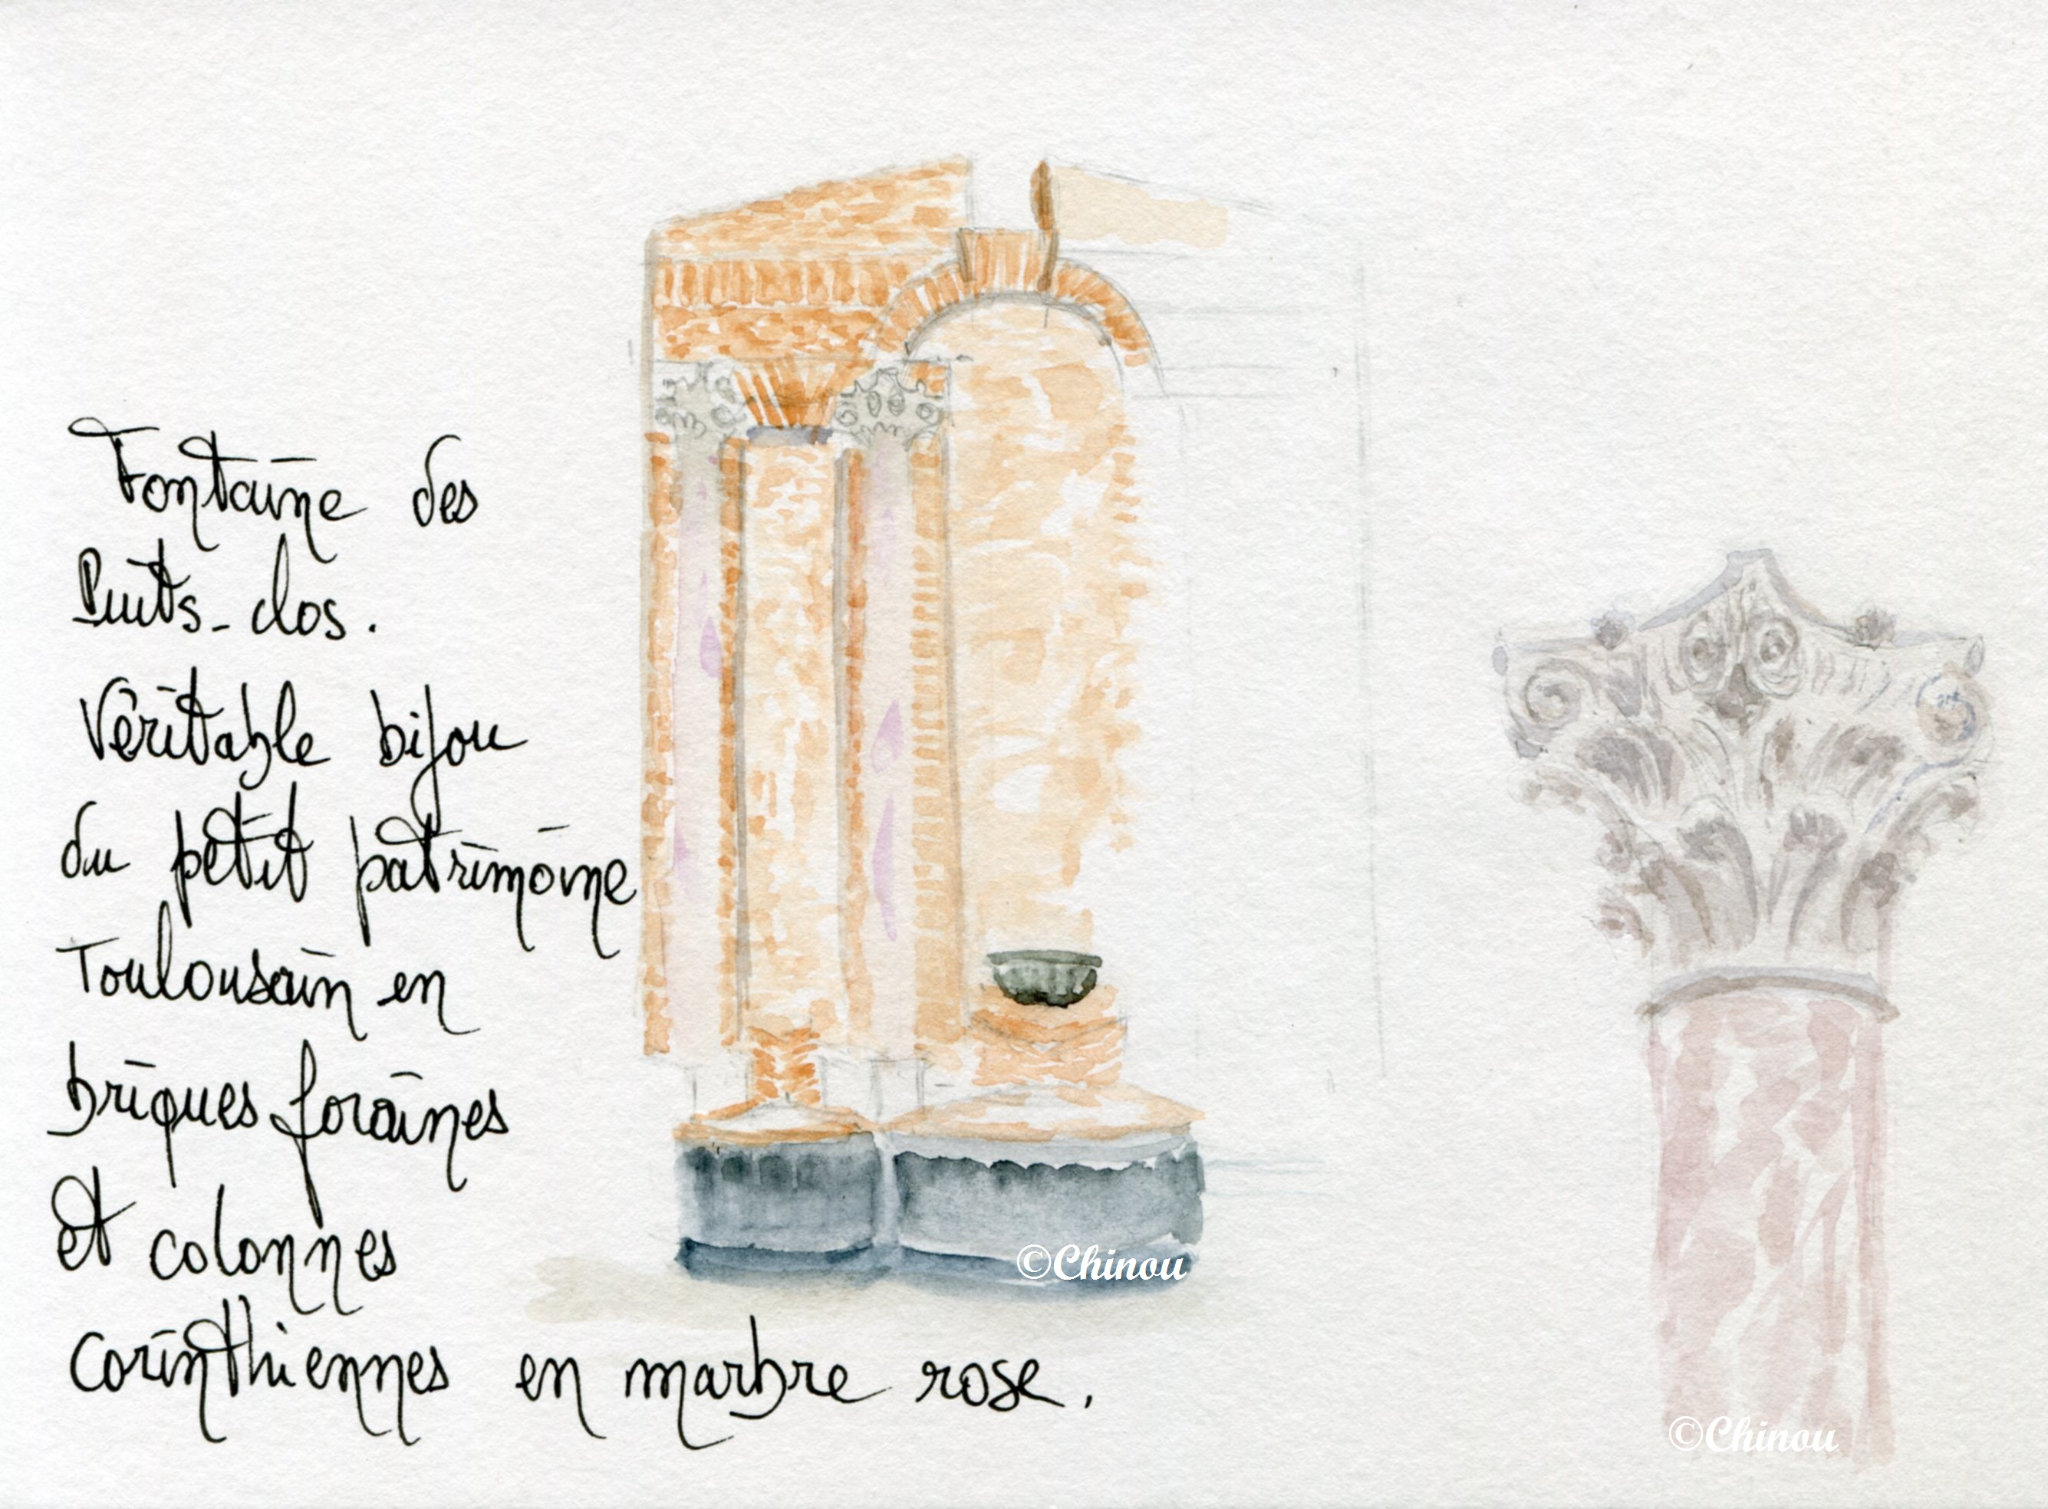 Fontaine des
Puits-clos.
Véritable bijou
du petit patrimoine
Toulousain en
briques foraines
et colonnes
corinthiennes en marbre rose.
©Chinou
©Chinou